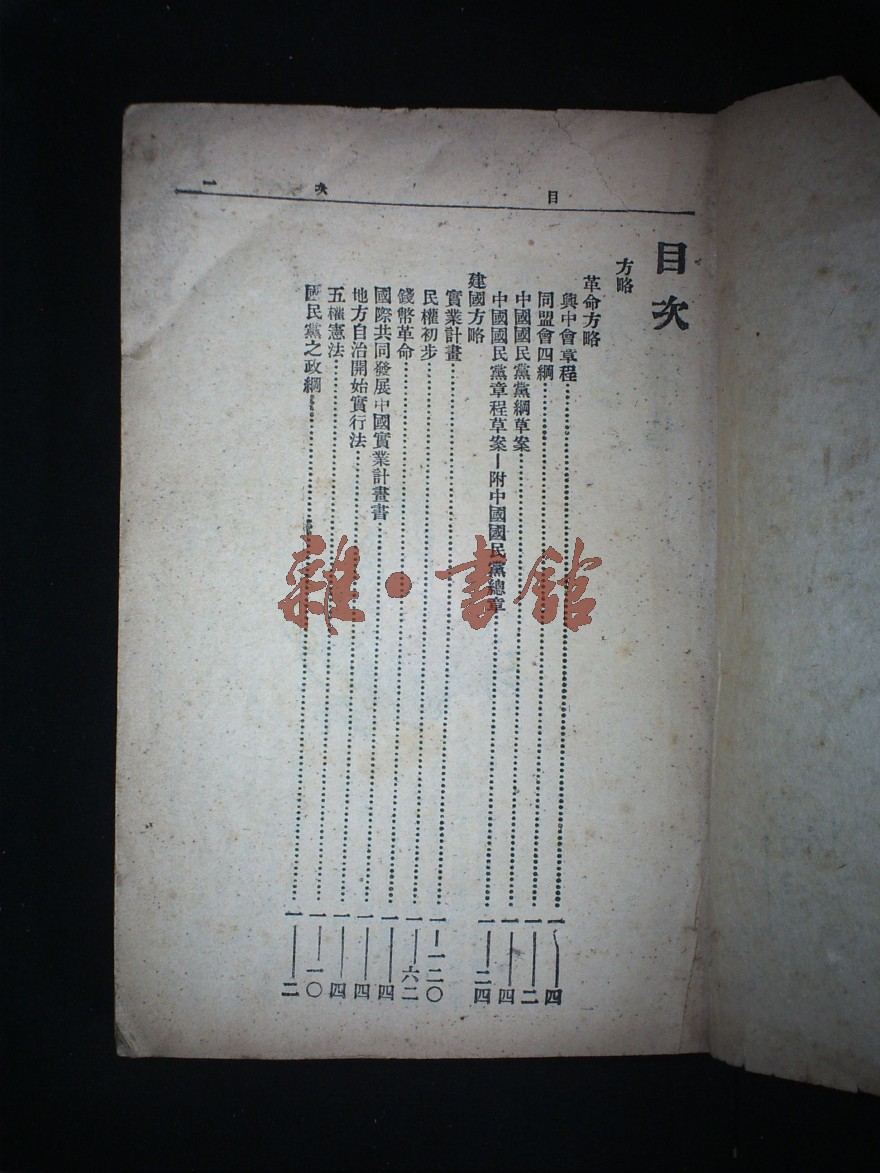 目 次 一
目次
方略
革命方略
興中會章程……一—四
同盟會四綱……一—二
中國國民黨黨綱草案……一—四
中國國民黨章程草案—附中國國民黨總章……一—二四
建國方略
實業計畫……一—一二〇
民權初步……一—六二
錢幣革命……一—四
國際共同發展中國實業計畫書……一—四
地方自治開始實行法……一—四
五權憲法……一—一〇
國民黨之政綱……一—二
雜·書館